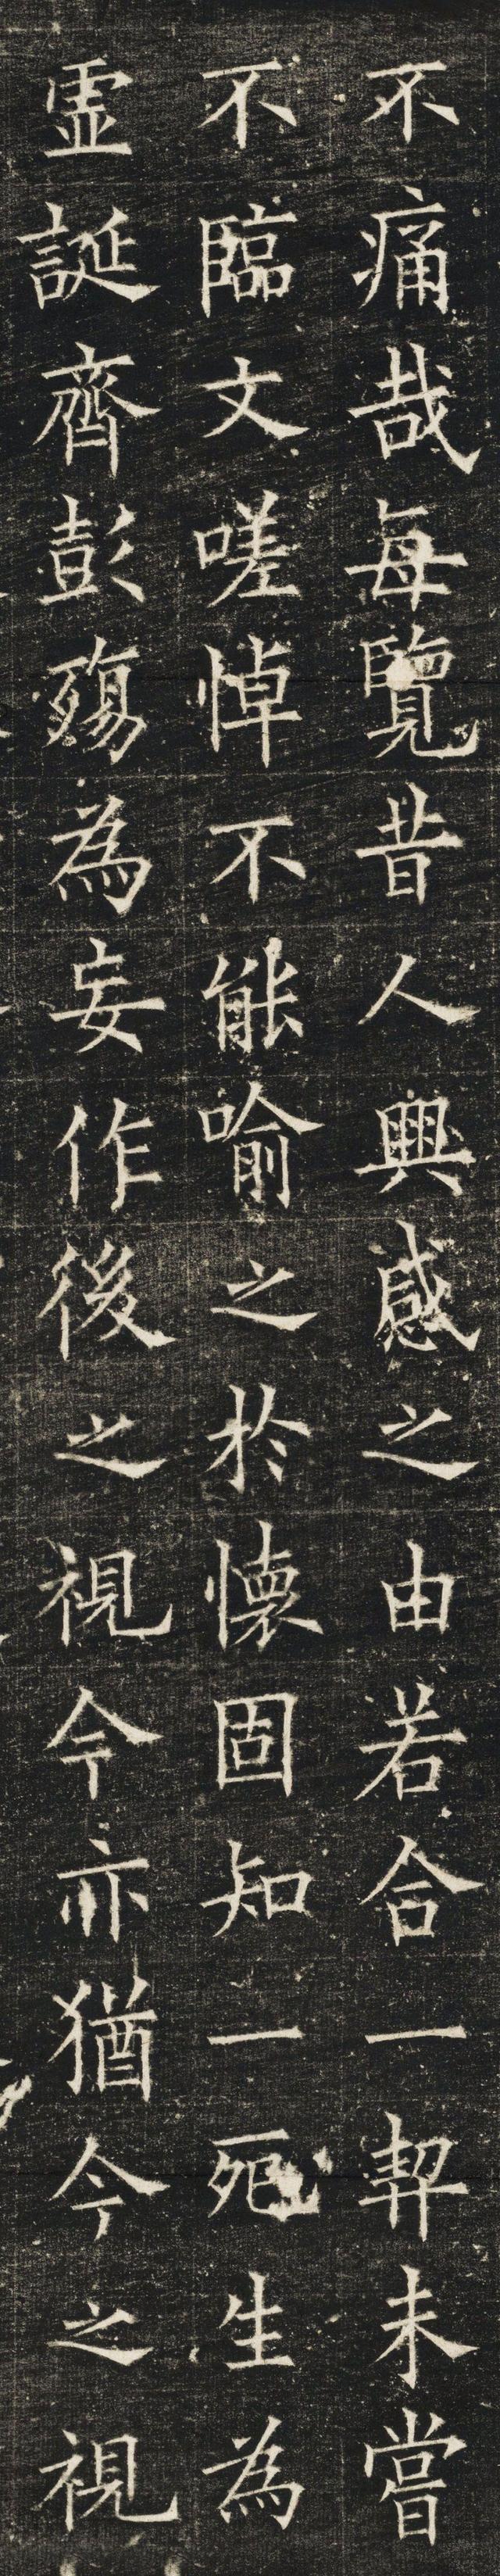 不痛哉每覽昔人興感之由若合一契未嘗
不臨文嗟悼不能喻之於懷固知一死生為
虛誕齊彭殤為妄作後之視今亦猶今之視